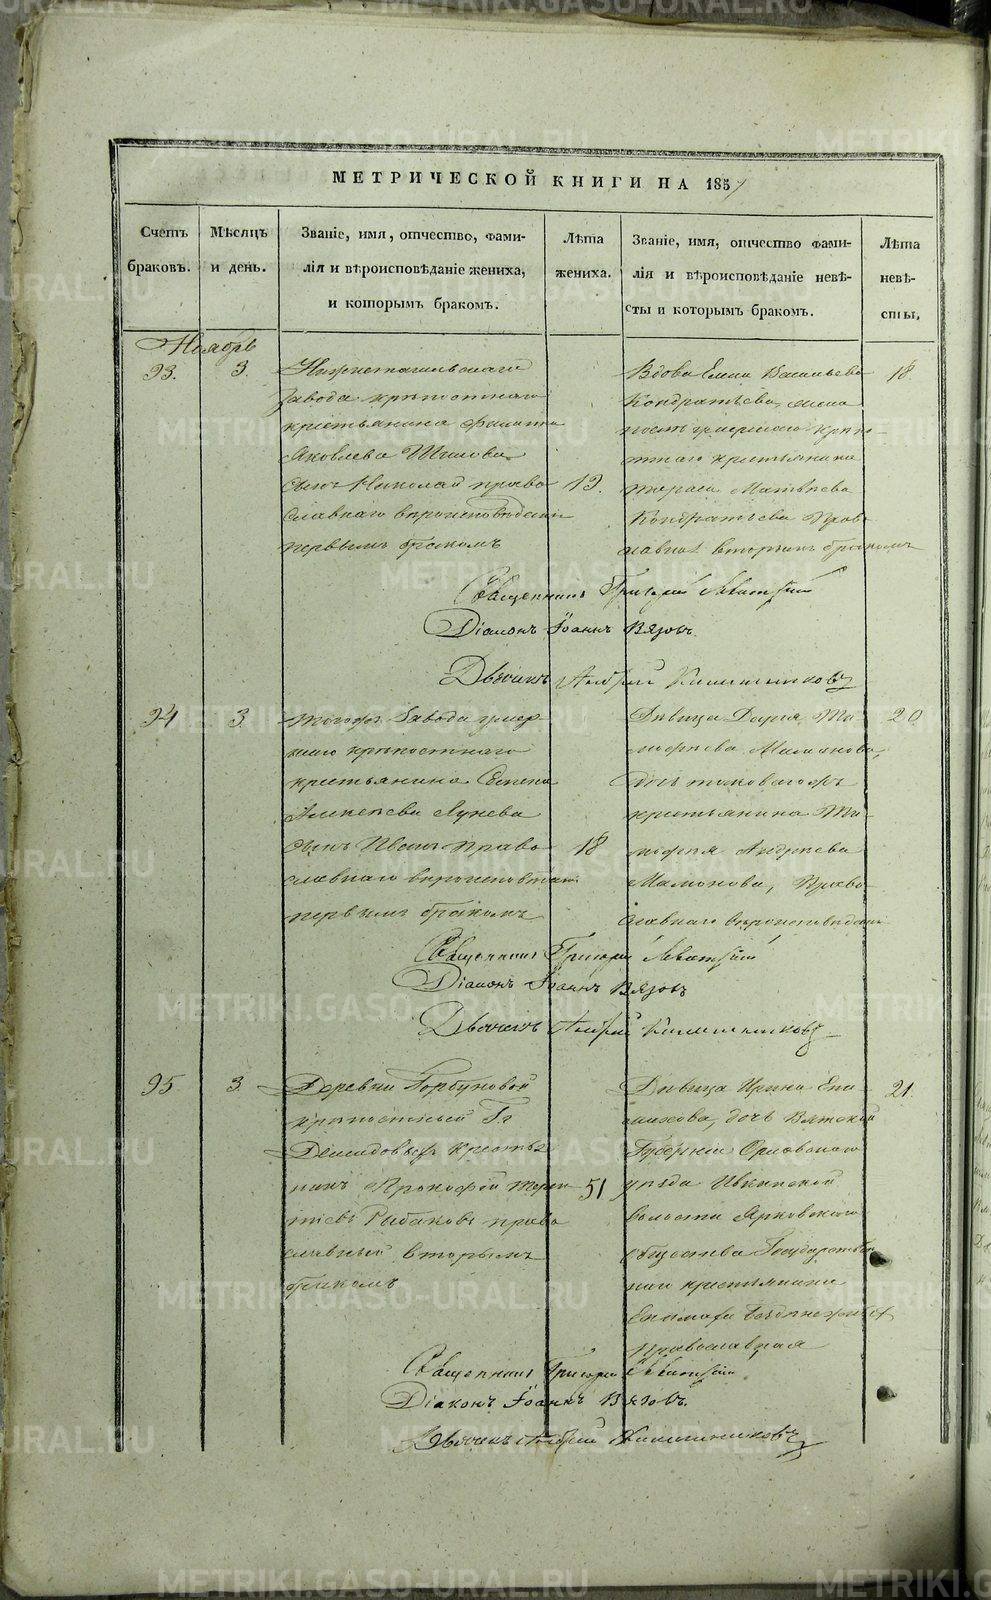 МЕТРИЧЕСКОЙ КНИГИ НА 1857
Счетъ браковъ.
Мѣсяцъ и день.
Званіе, имя, отчество, фами-
лія и вѣроисповѣданіе жениха,
и которымъ бракомъ.
Лѣта жениха.
Званіе, имя, отчество фами-
лія и вѣроисповѣданіе невѣ-
сты и которымъ бракомъ.
Лѣта невѣ-
сты,
Ноябрь
93.
3.
Нижнетагильскаго
завода крѣпостнаго
крестьянина
Яковлева
сынъ Николай право
славнаго вѣроисповѣданія
первымъ бракомъ
19.
Вдова Елена Васильева
Кондратьева, жена
послѣ умершаго крѣпо-
стнаго крестьянина
Матвѣева
Кондратьева Прав-
славная вторымъ бракомъ
18.
Священникъ Григорій
Діаконъ Іоаннъ Вязовъ.
Дьячекъ Андрей
94
3.
Тогожъ Завода умер
шаго крѣпостнаго
крестьянина Семена
Алексѣева Лунева
сынъ Иванъ Право
славнаго
первымъ бракомъ
18
Дѣвица Дарья Ти
мофѣева Мамонова,
дочь таковагожъ
крестьянина Ти-
мофея Андреева
Мамонова, Право-
славнаго вѣроисповѣданія
20
Священникъ Григорій
Діаконъ Іоаннъ Вязовъ
Дьячекъ Андрей
95
3.
Деревни Горбуновой
крѣпостный Гг
Демидовыхъ крестья
нинъ Прокофій Терен
тіевъ Рыбаковъ право
славный вторымъ
бракомъ
51
Дѣвица Ирина Епи
махова, дочь Вятской
Губерніи Орловскаго
уѣзда
волости Ярковскаго
общества Государствен
наго крестьянина
Епимаха
православная
21.
Священникъ Григорій
Діаконъ Іоаннъ Вязовъ.
Дьячекъ Андрей
METRIKI.GASO-URAL.RU